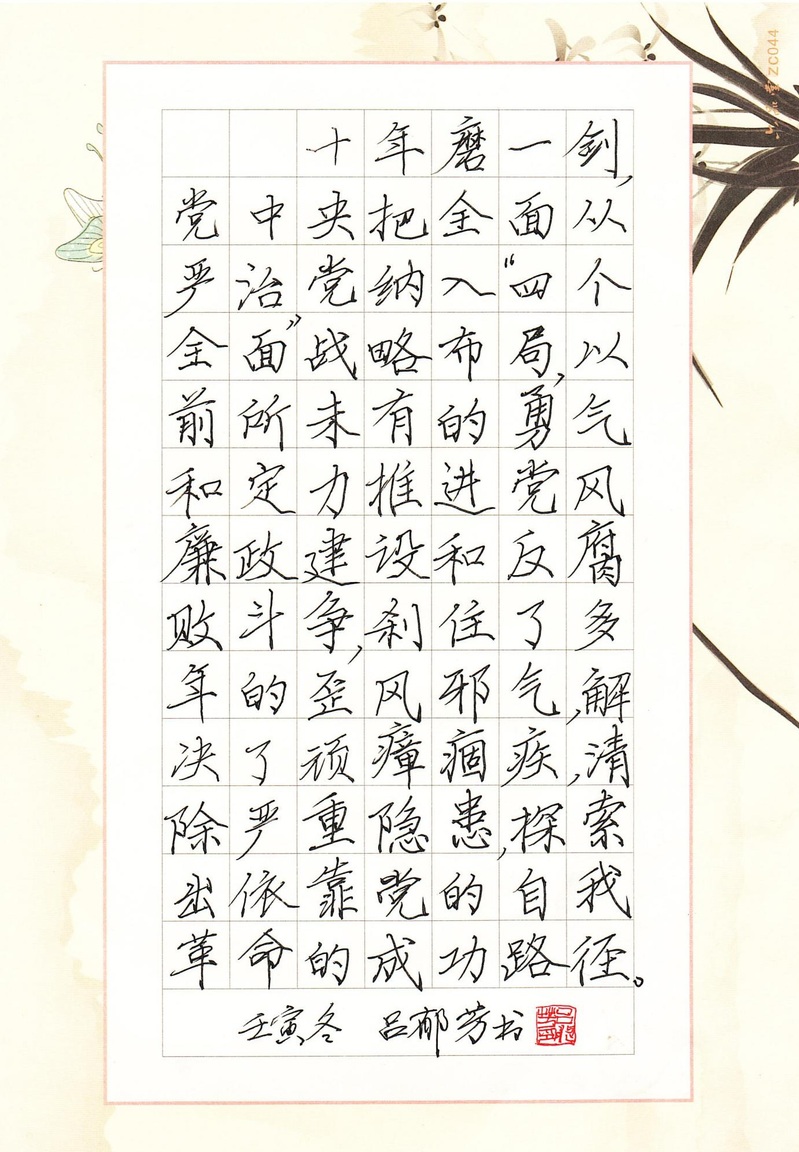 十年磨一剑,
党中央把全面从
严治党纳入“四个
全面”战略布局,以
前所未有的勇气
和定力推进党风
廉政建设和反腐
败斗争,刹住了多
年的歪风邪气,解
决了顽瘴痼疾,清
除严重隐患,探索
出依靠党的自我
革命的成功路径。
壬寅冬 吕郁芳书
ZC044